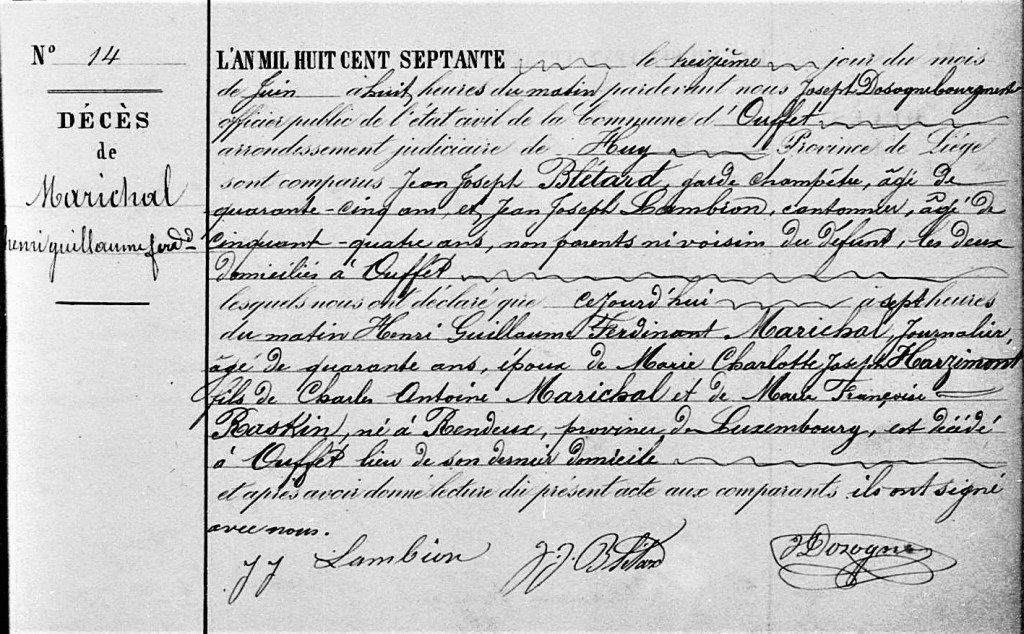 Nº 14
DÉCÈS
de
Marichal
henri guillaume ferdd
L'AN MIL HUIT CENT SEPTANTE le treizième jour du mois
de Juin à huit heures du matin pardevant nous Joseph Dosogne bourgmestre
officier public de l'état civil de la Commune d'Ouffet
arrondissement judiciaire de Huy Province de Liége
sont comparus Jean Joseph Blétard, garde champêtre, âgé de
quarante-cinq ans, et Jean Joseph Lambion, cantonnier, âgé de
cinquant-quatre ans, non parents ni voisins du défunt, les deux
domiciliés à Ouffet
lesquels nous ont déclaré que cejourd'hui à sept heures
du matin Henri Guillaume Ferdinant Marichal, Journalier,
âgé de quarante ans, époux de Marie Charlotte Joseph Harzimont
fils de Charles Antoine Marichal et de Marie Françoise
Raskin, né à Rendeux, province de Luxembourg, est décédé
à Ouffet lieu de son dernier domicile
et après avoir donné lecture du présent acte aux comparants ils ont signé
avec nous.
J J Lambion J. J. Blétard J Dosogne